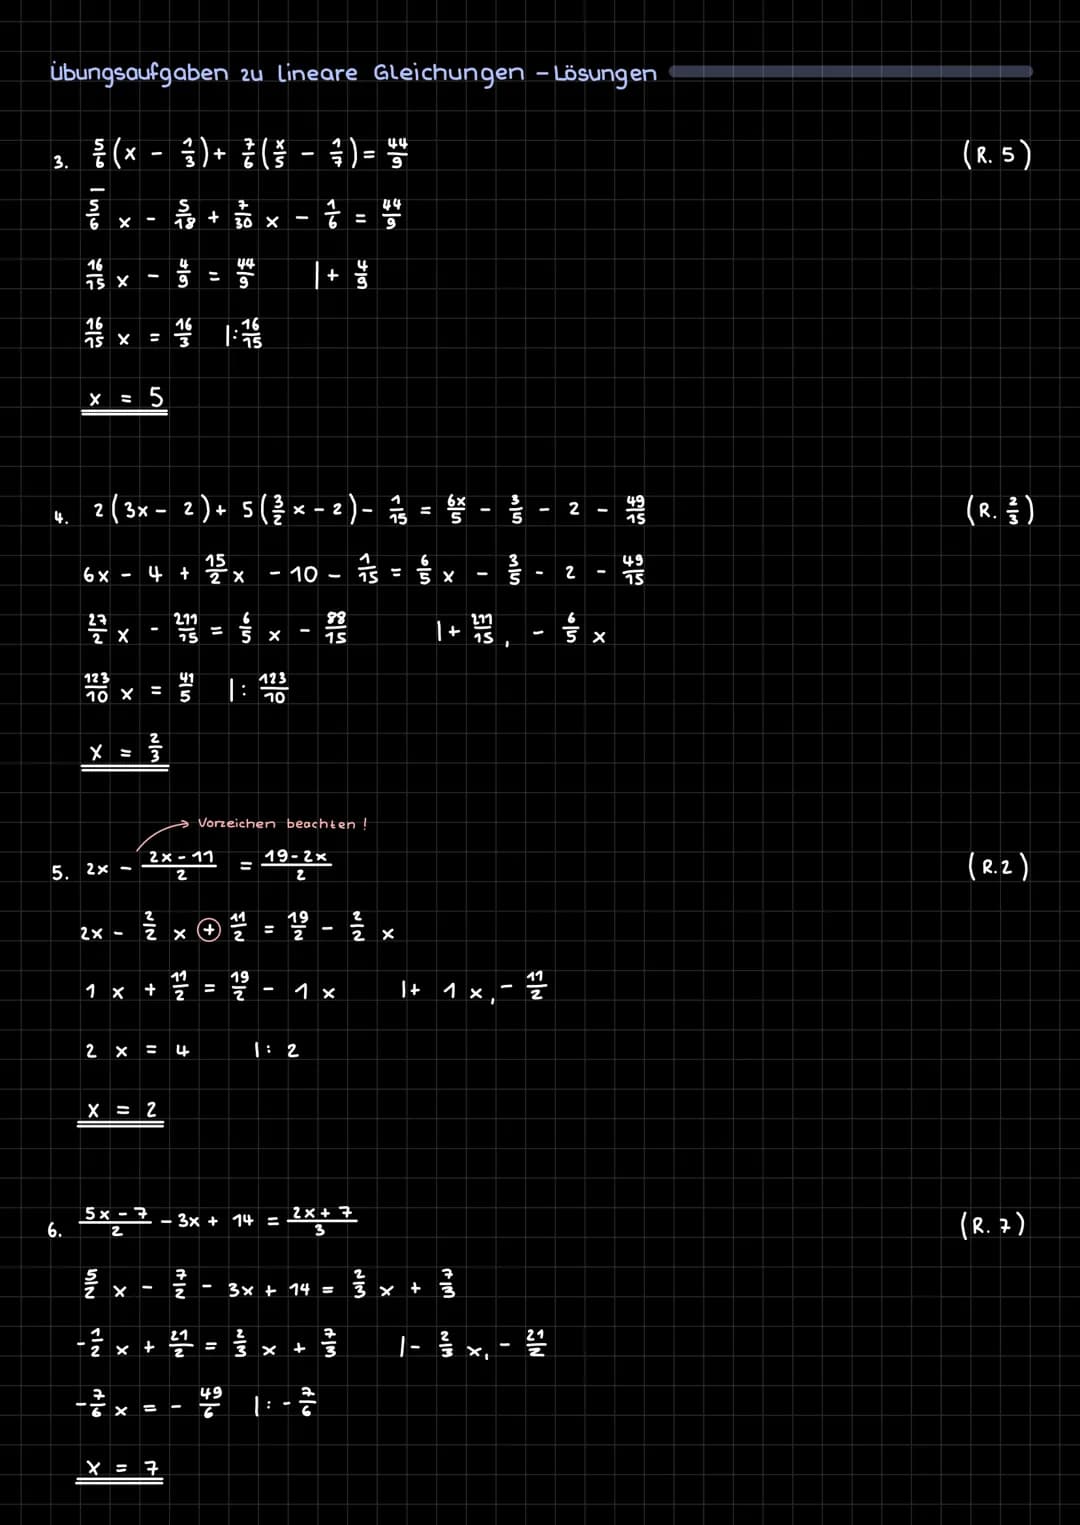 Übungsaufgaben zu lineare Gleichungen – Lösungen
3. 5/6 (x - 1/3) + 7/6 (x/5 - 1/7) = 44/9 (R. 5)
5/6 x - 5/18 + 7/30 x - 1/6 = 44/9
16/15 x - 4/9 = 44/9 |+ 4/9
16/15 x = 16/3 |: 16/15
x = 5
4. 2(3x - 2) + 5(3/2 x - 2) - 1/15 = 6x/5 - 3/5 - 2 - 49/15 (R. 2/3)
6x - 4 + 15/2 x - 10 - 1/15 = 6/5 x - 3/5 - 2 - 49/15
27/2 x - 211/15 = 6/5 x - 88/15 |+ 211/15, - 6/5 x
123/10 x = 41/5 |: 123/10
x = 2/3
→ Vorzeichen beachten!
5. 2x - (2x - 11)/2 = (19 - 2x)/2 (R. 2)
2x - 2/2 x + 11/2 = 19/2 - 2/2 x
1x + 11/2 = 19/2 - 1x |+ 1x, - 11/2
2x = 4 |: 2
x = 2
6. (5x - 7)/2 - 3x + 14 = (2x + 7)/3 (R. 7)
5/2 x - 7/2 - 3x + 14 = 2/3 x + 7/3
-1/2 x + 21/2 = 2/3 x + 7/3 |- 2/3 x, - 21/2
-7/6 x = - 49/6 |: - 7/6
x = 7